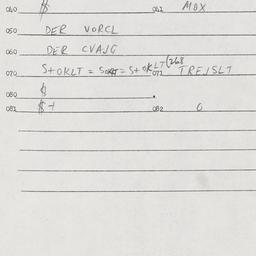 040 $ 042 MOX
050 DER VORCL
060 DER CVAJG
070 S+OKLT = SOKT = S+OKLT(268 072 TREJSLT
080 $
081 $-1 082 0